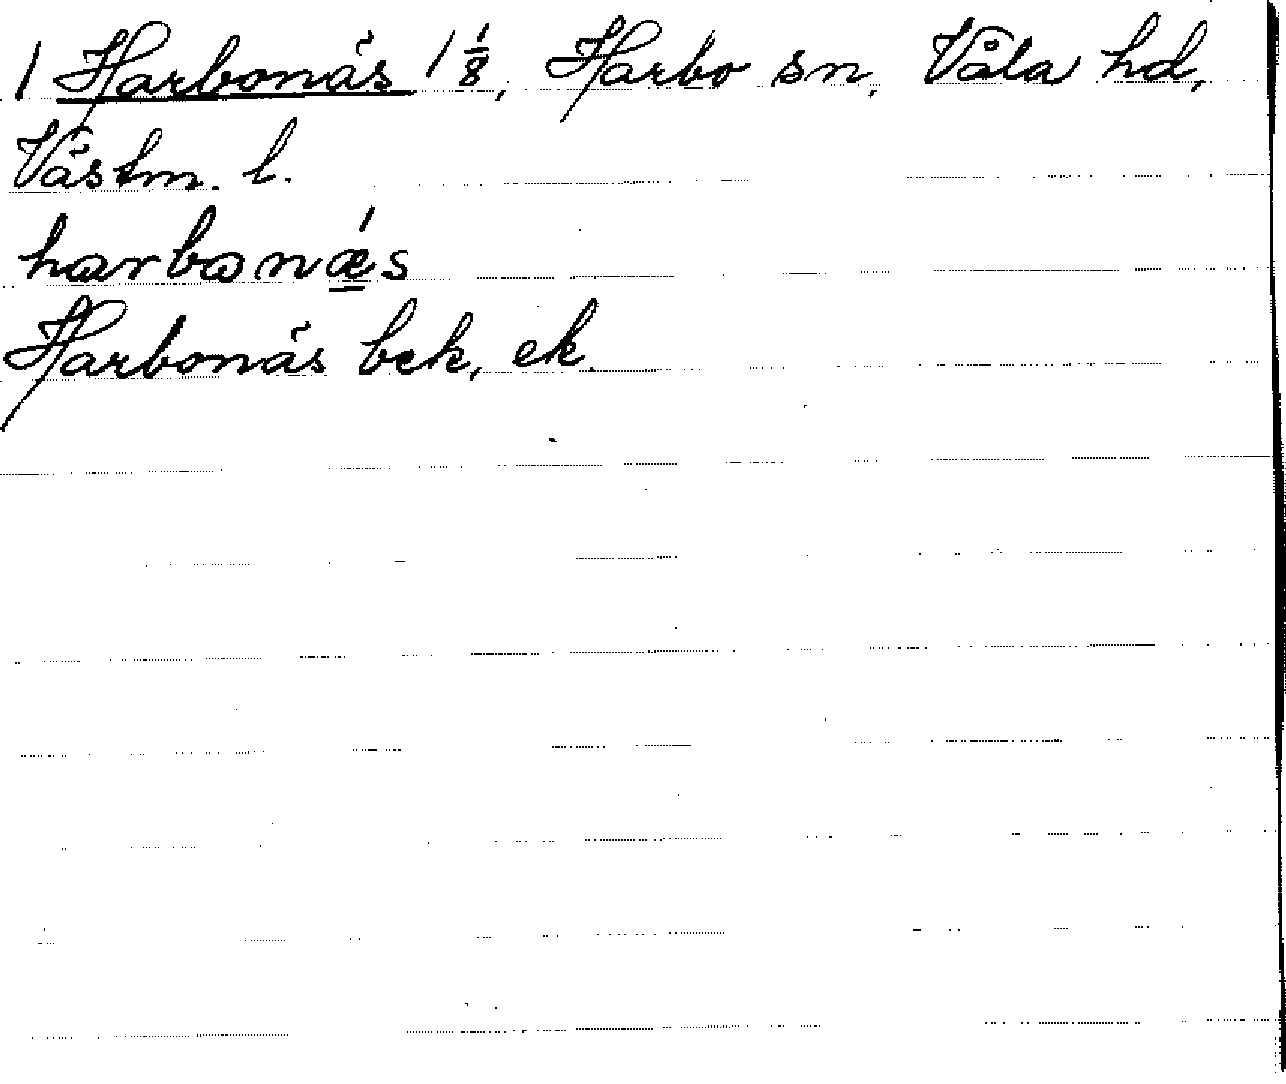 1 Harbonäs 1 1/8, Harbo sn, Våla hd,
Västm. l.
harbonǽs
Harbonäs bek, ek.